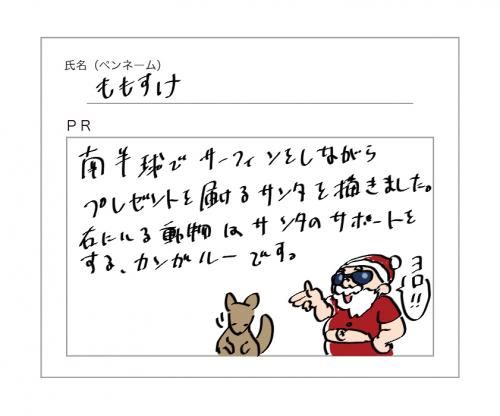 氏名（ペンネーム）
ももすけ
PR
南半球でサーフィンをしながら
プレゼントを届けるサンタを描きました。
右にいる動物はサンタのサポートを
する、カンガルーです。
ヨロ!!